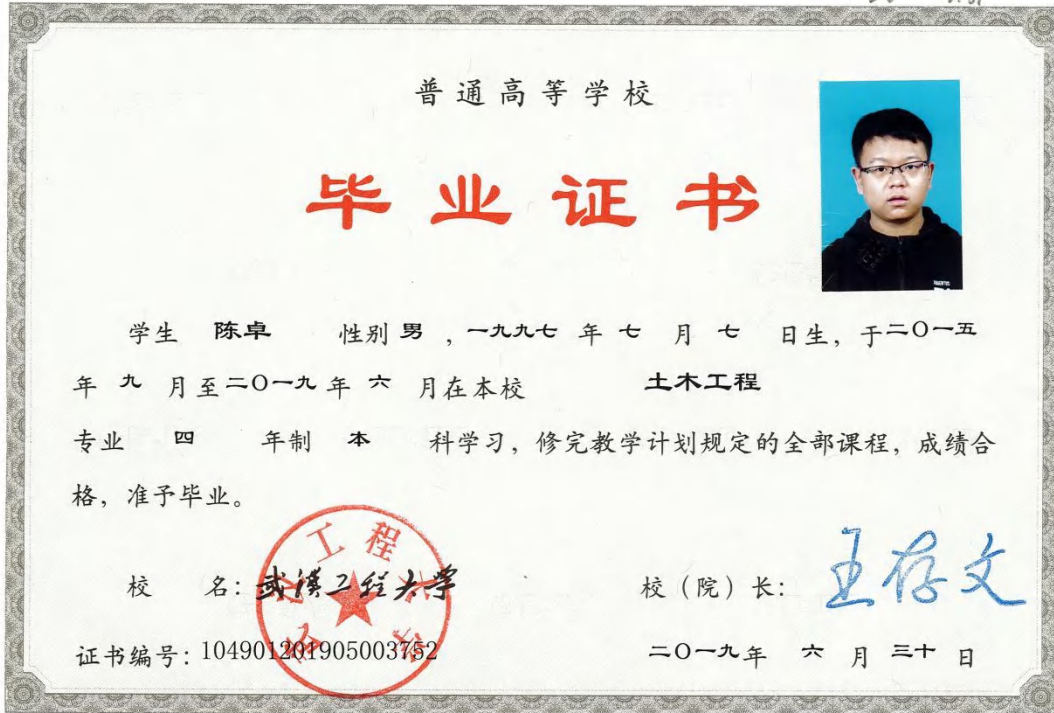 普通高等学校
毕业证书
学生 陈卓 性别 男 ，一九九七 年 七 月 七 日生，于二〇一五
年 九 月至二〇一九 年 六 月在本校 土木工程
专业 四 年制 本 科学习，修完教学计划规定的全部课程，成绩合
格，准予毕业。
校 名：武汉工程大学
校（院）长：王存文
证书编号：104901201905003752
二〇一九年 六 月 三十 日